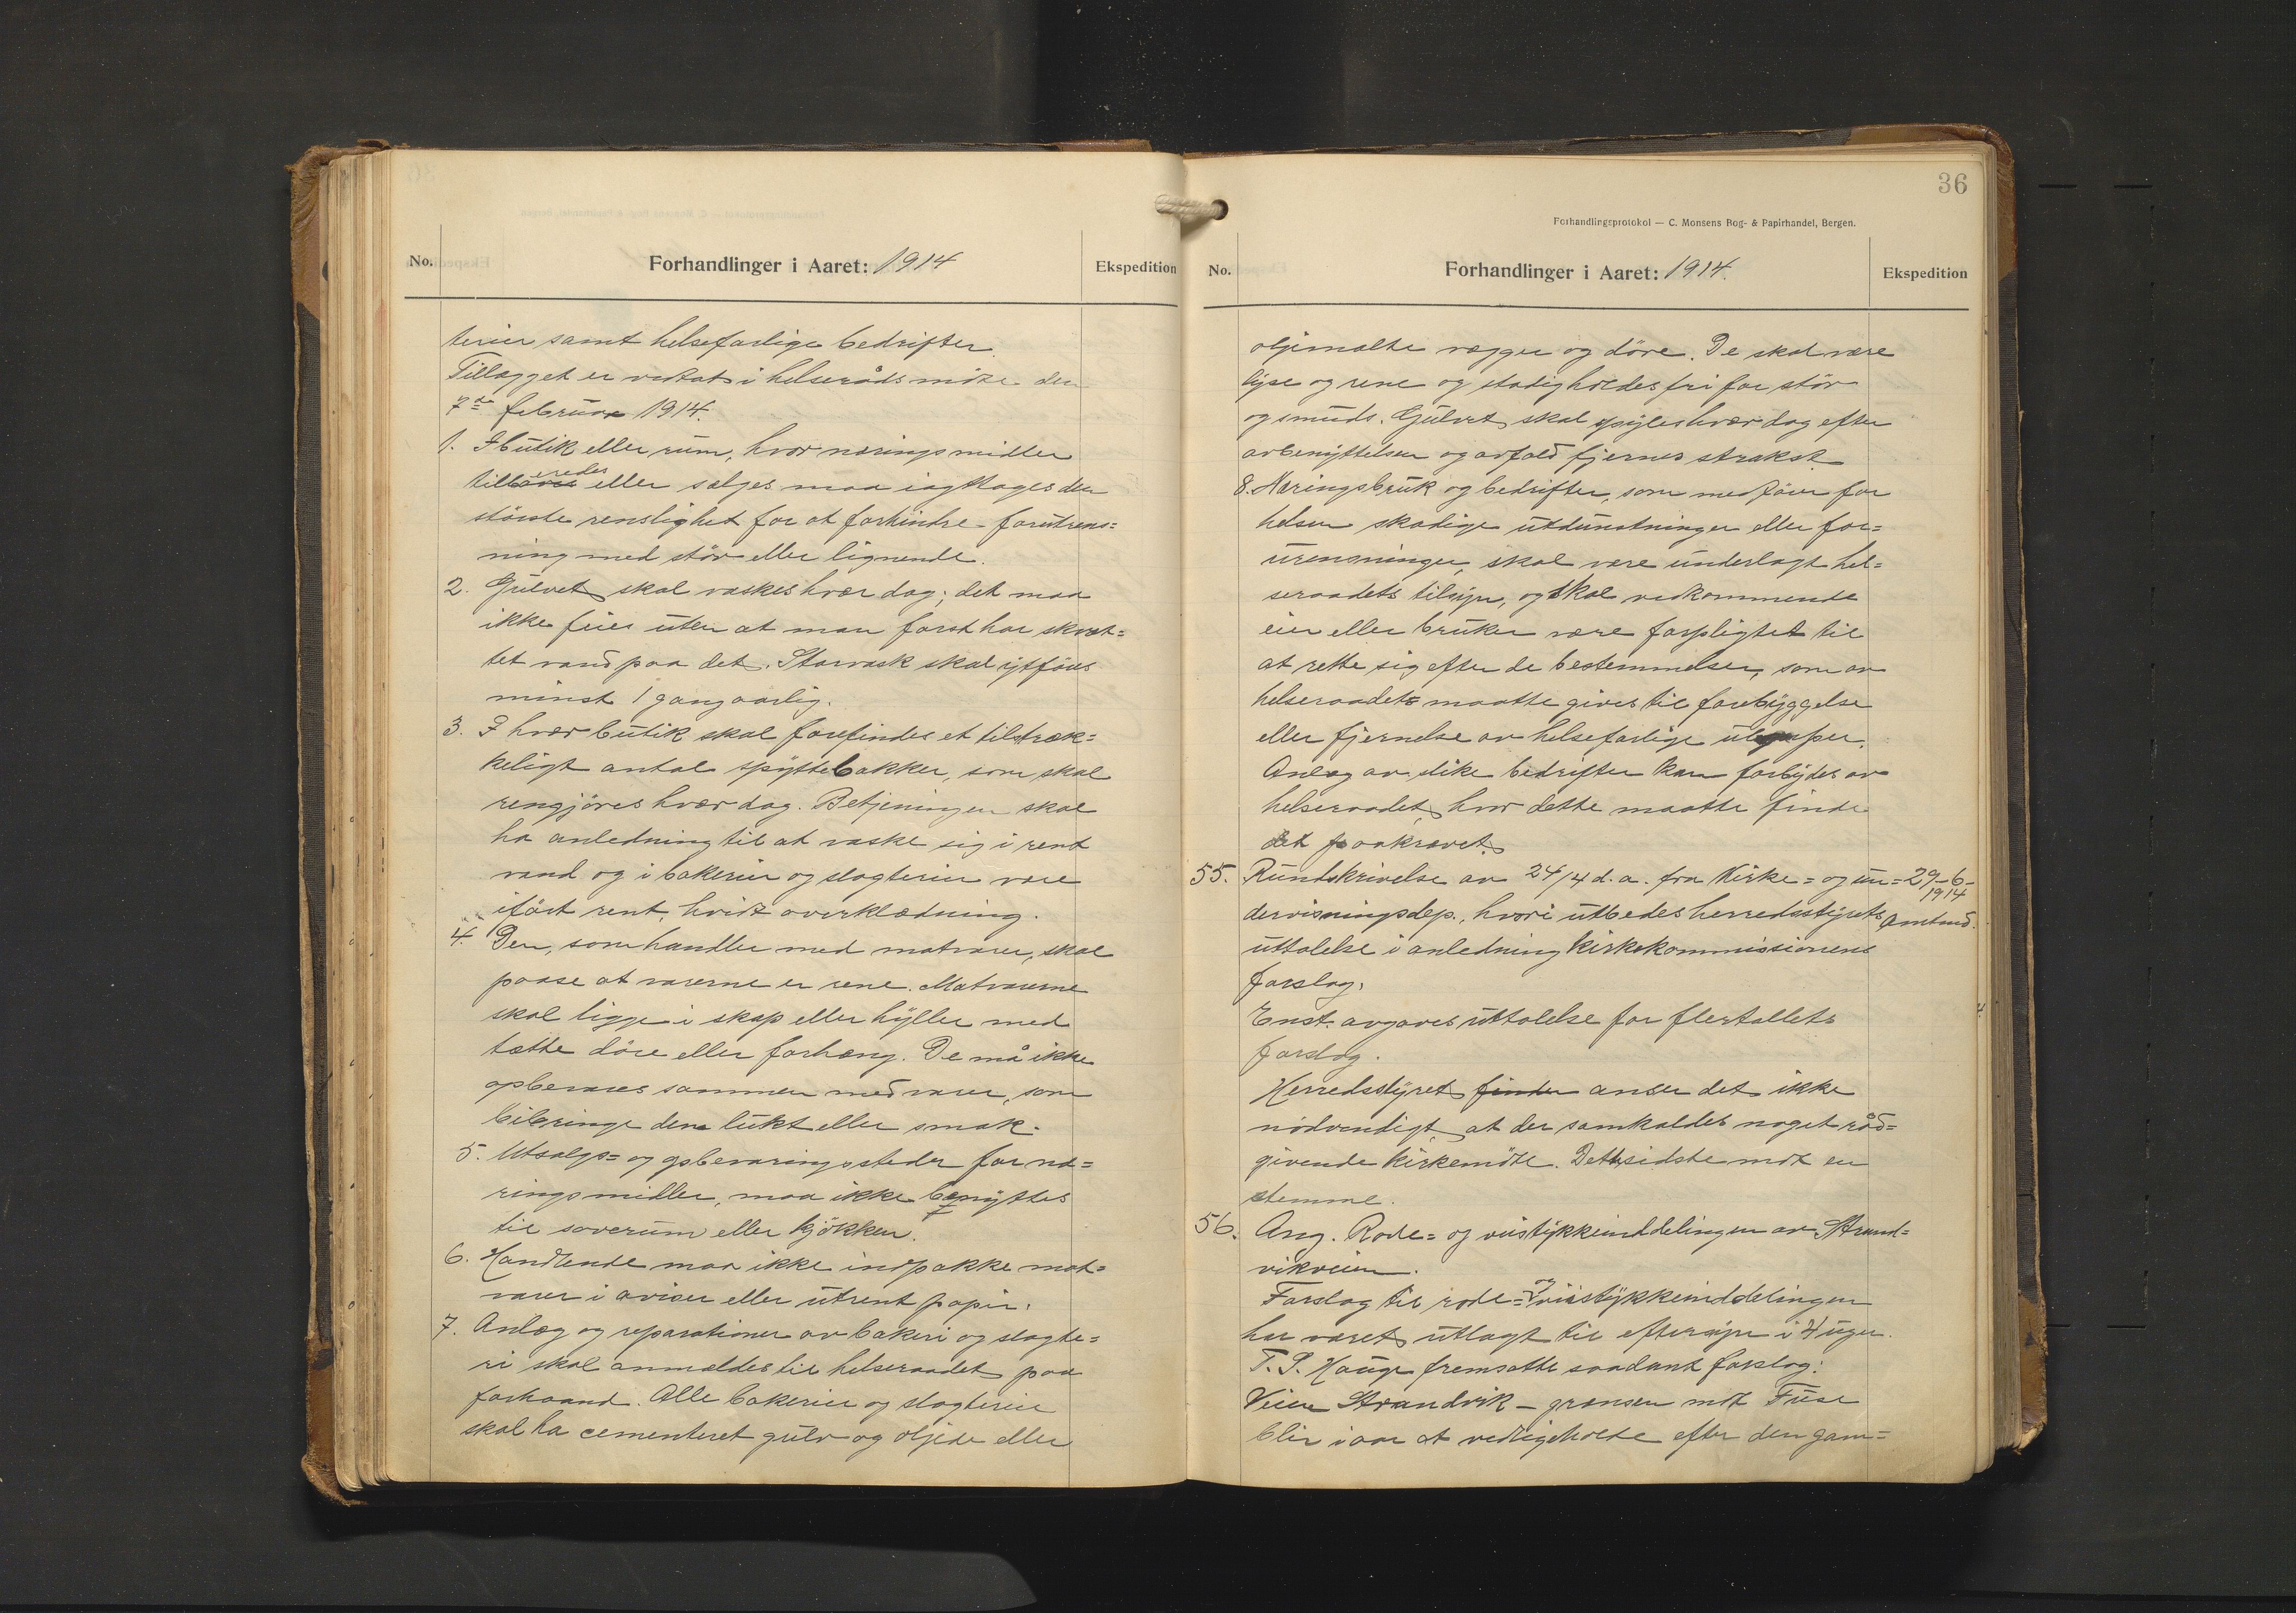 No.
Forhandlinger i Aaret: 1914
Ekspedition
terier samt helsefarlige bedrifter.
Tillægget er vedtat i helserådsmöte den
7de februar 1914.
1. I butik eller rum, hvor næringsmidler
tilberedes eller sælges maa iagttages den
störste renslighet for at forhindre forurens=
ning med stöv eller lignende.
2. Gulvet skal vaskes hver dag; det maa
ikke feies uten at man först har skvæt=
tet vand paa det. Storvask skal utföres
minst 1 gang aarlig.
3. I hver butik skal forefindes et tilstræk=
keligt antal spyttebakker, som skal
rengjöres hver dag. Betjeningen skal
ha anledning til at vaske sig i rent
vand og i bakerier og slagterier være
iført rent, hvidt overklædning.
4. Den, som handler med matvarer, skal
paase at varerne er rene. Matvarerne
skal ligge i skap eller hyller med
tætte döre eller forhæng. De må ikke
opbevares sammen med varer, som
bibringe dem lukt eller smak.
5. Utsalgs= og opbevaringssteder for næ=
ringsmidler, maa ikke benyttes
til soverum eller kjökken.
6. Handlende maa ikke indpakke mat=
varer i aviser eller urent papir.
7. Anlæg og reparationer av bakeri og slagte=
ri skal anmeldes til helseraadet paa
forhaand. Alle bakerier og slagterier
skal ha cementeret gulv og oljede eller
36
Forhandlingsprotokol — C. Monsens Bog- & Papirhandel, Bergen.
No.
Forhandlinger i Aaret: 1914.
Ekspedition
oljemalte vægger og döre. De skal være
lyse og rene og stadig holdes fri for stöv
og smuds. Gulvet skal spyles hver dag efter
avbenyttelsen og avfald fjernes strakst.
8. Næringsbruk og bedrifter, som medförer for
helsen skadige utdunstninger eller for=
urensninger, skal være underlagt hel=
seraadets tilsyn, og skal vedkommende
eier eller bruker være forpligtet til
at rette sig efter de bestemmelser, som av
helseraadet maatte gives til forebyggelse
eller fjernelse av helsefarlige ulemper.
Anlæg av slike bedrifter kan forbydes av
helseraadet, hvor dette maatte finde
det paakrævet.
55. Rundskrivelse av 24/4 d.a. fra Kirke= og un= 29-6-
1914
dervisningsdep., hvori utbedes herredsstyrets Amtmd.
uttalelse i anledning kirkekommissionens
forslag.
Enst. avgaves uttalelse for flertallets
forslag.
Herredsstyret finder anser det ikke
nödvendigt at der samkaldes noget råd=
givende kirkemöte. Dette sidste mot en
stemme.
56. Ang. Rode= og veistykkeinddelingen av Strand=
vikveien.
Forslag til rode= og veistykkeinddelingen
har været utlagt til eftersyn i 4 uger.
T. S. Hauge fremsatte saadant forslag:
Veien Strandvik – grænsen mot Fuse
blir i aar at vedlikeholde efter den gam=